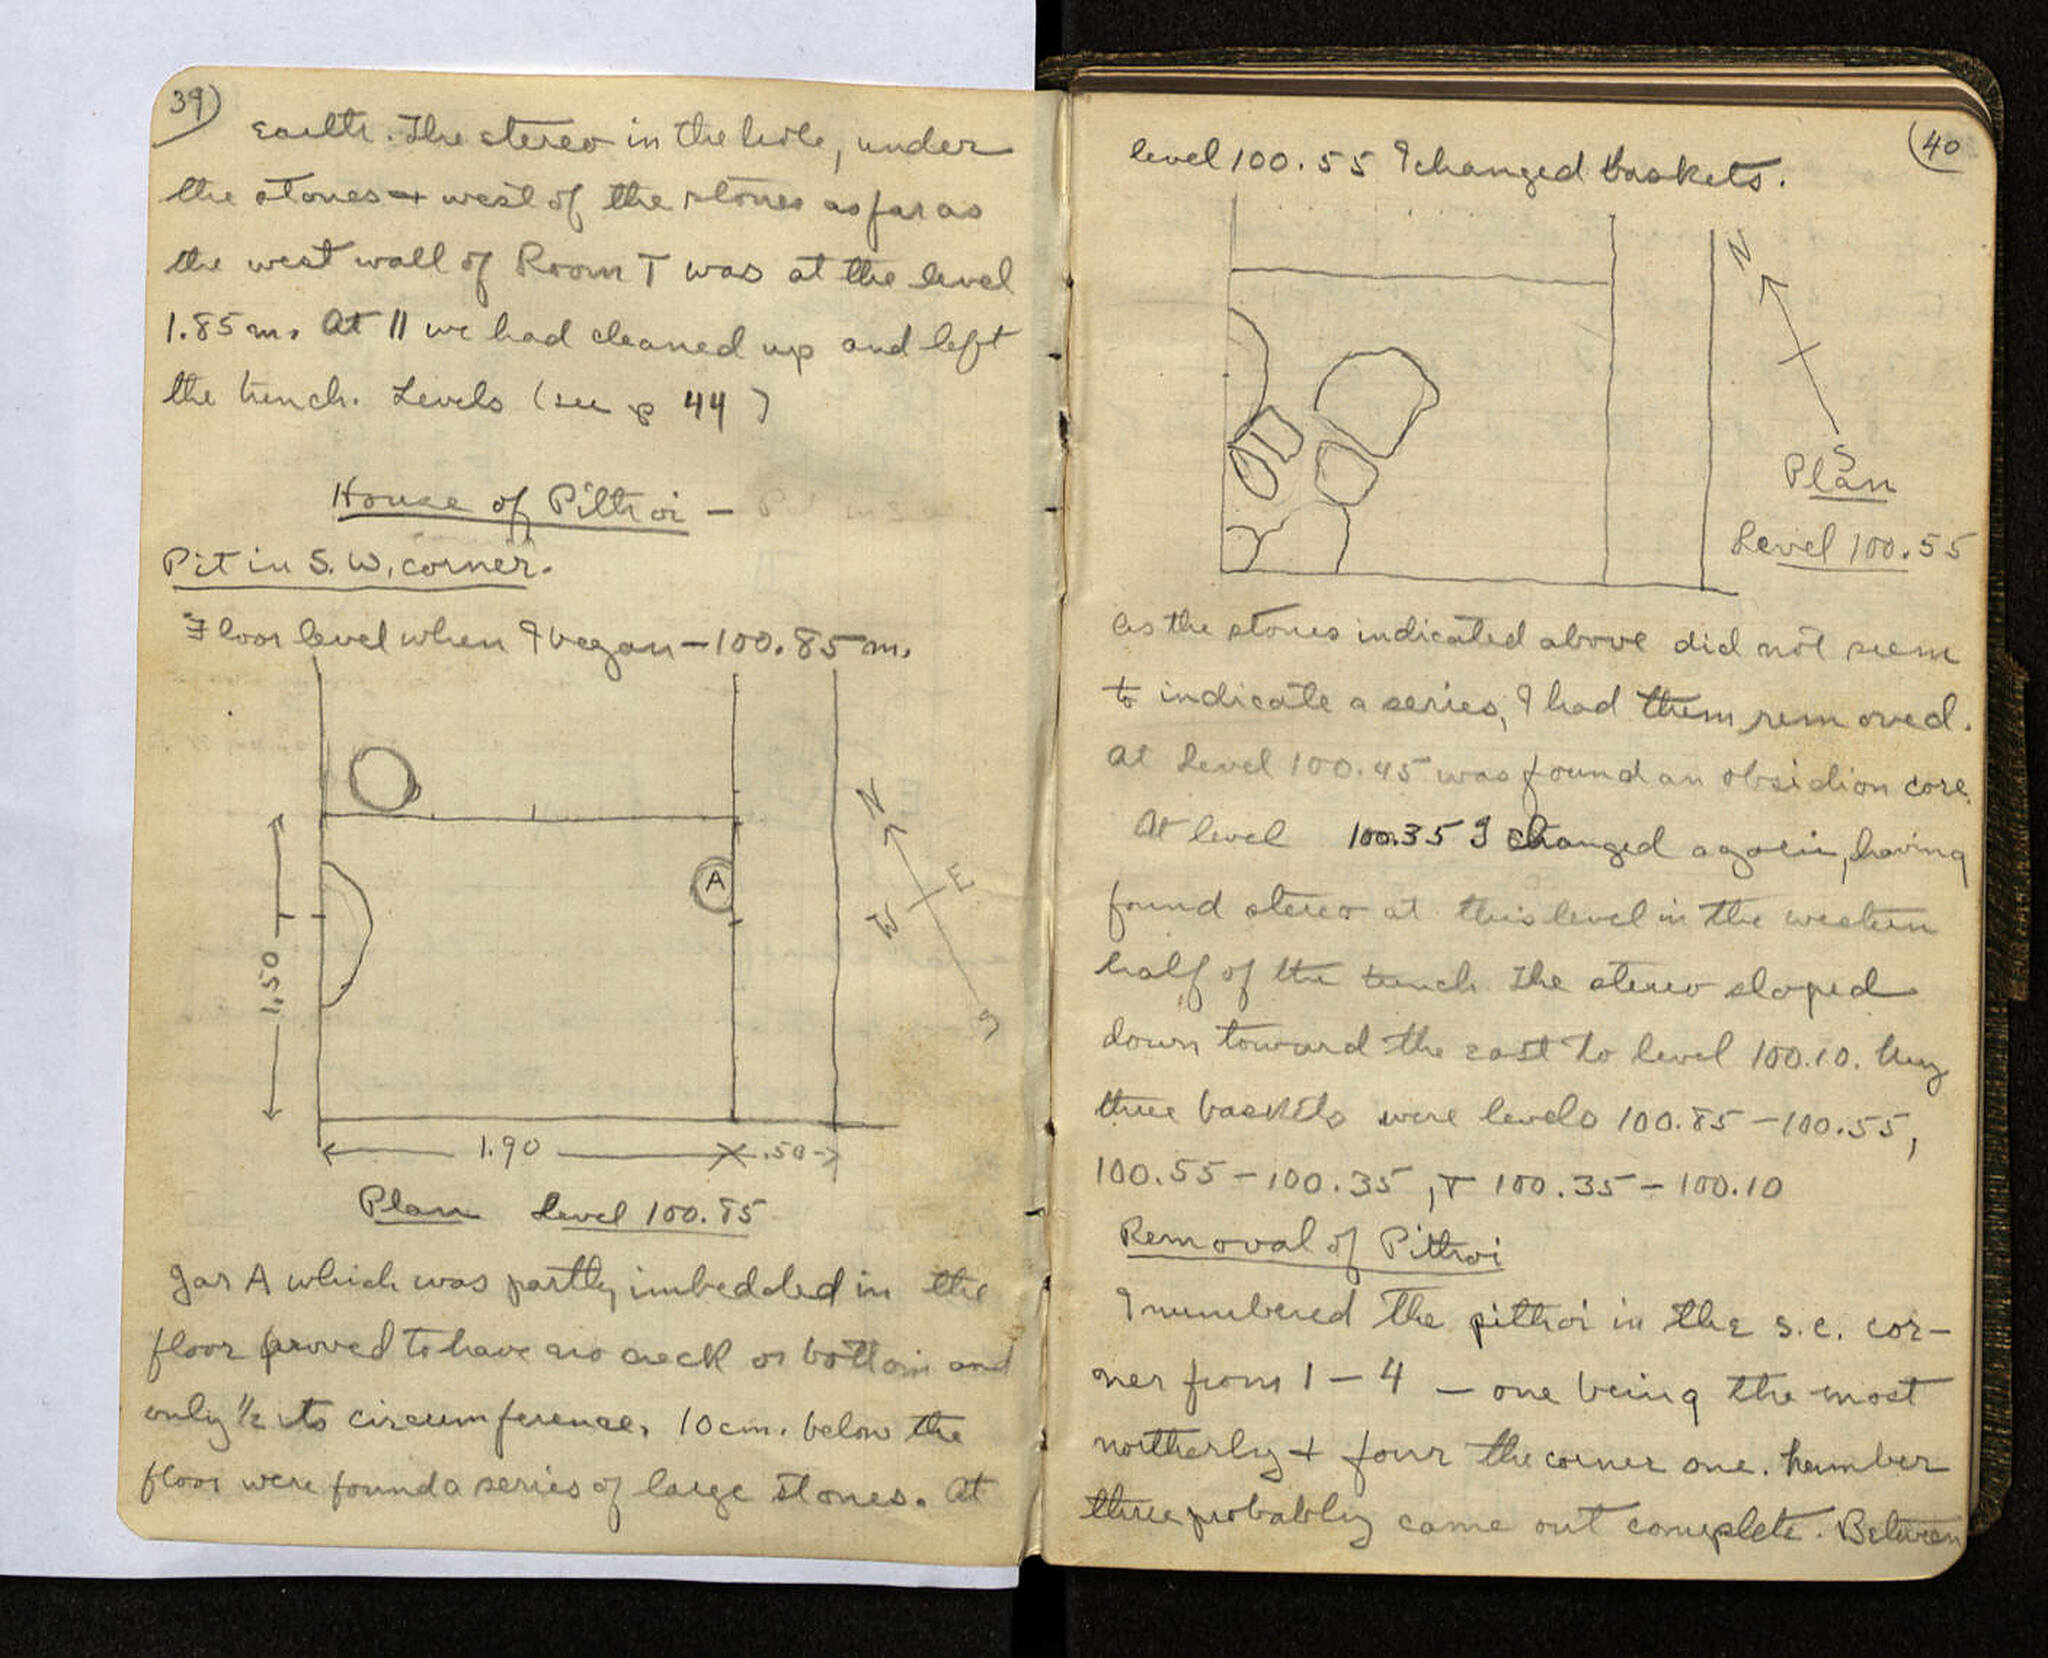 39)
earth. The stereo in the hole, under
the stones + west of the stones as far as
the west wall of Room T was at the level
1.85 m. At 11 we had cleaned up and left
the trench. Levels (see p 44)
House of Pithoi —
Pit in S.W. corner.
Floor level when I began — 100.85 m.
N
E
W
S
A
1.50
1.90
.50
Plan Level 100.85
Jar A which was partly imbedded in the
floor proved to have no neck or bottom and
only ½ its circumference. 10 cm. below the
floor were found a series of large stones. At
(40
level 100.55 I changed baskets.
N
S
Plan
Level 100.55
As the stones indicated above did not seem
to indicate a series, I had them removed.
At Level 100.45 was found an obsidion core.
At level 100.35 I changed again, having
found stereo at this level in the western
half of the trench. The stereo sloped
down toward the east to level 100.10. My
three baskets were levels 100.85 — 100.55,
100.55 — 100.35, + 100.35 — 100.10
Removal of Pithoi
I numbered the pithoi in the s.e. cor-
ner from 1 — 4 — one being the most
northerly + four the corner one. Number
three probably came out complete. Between